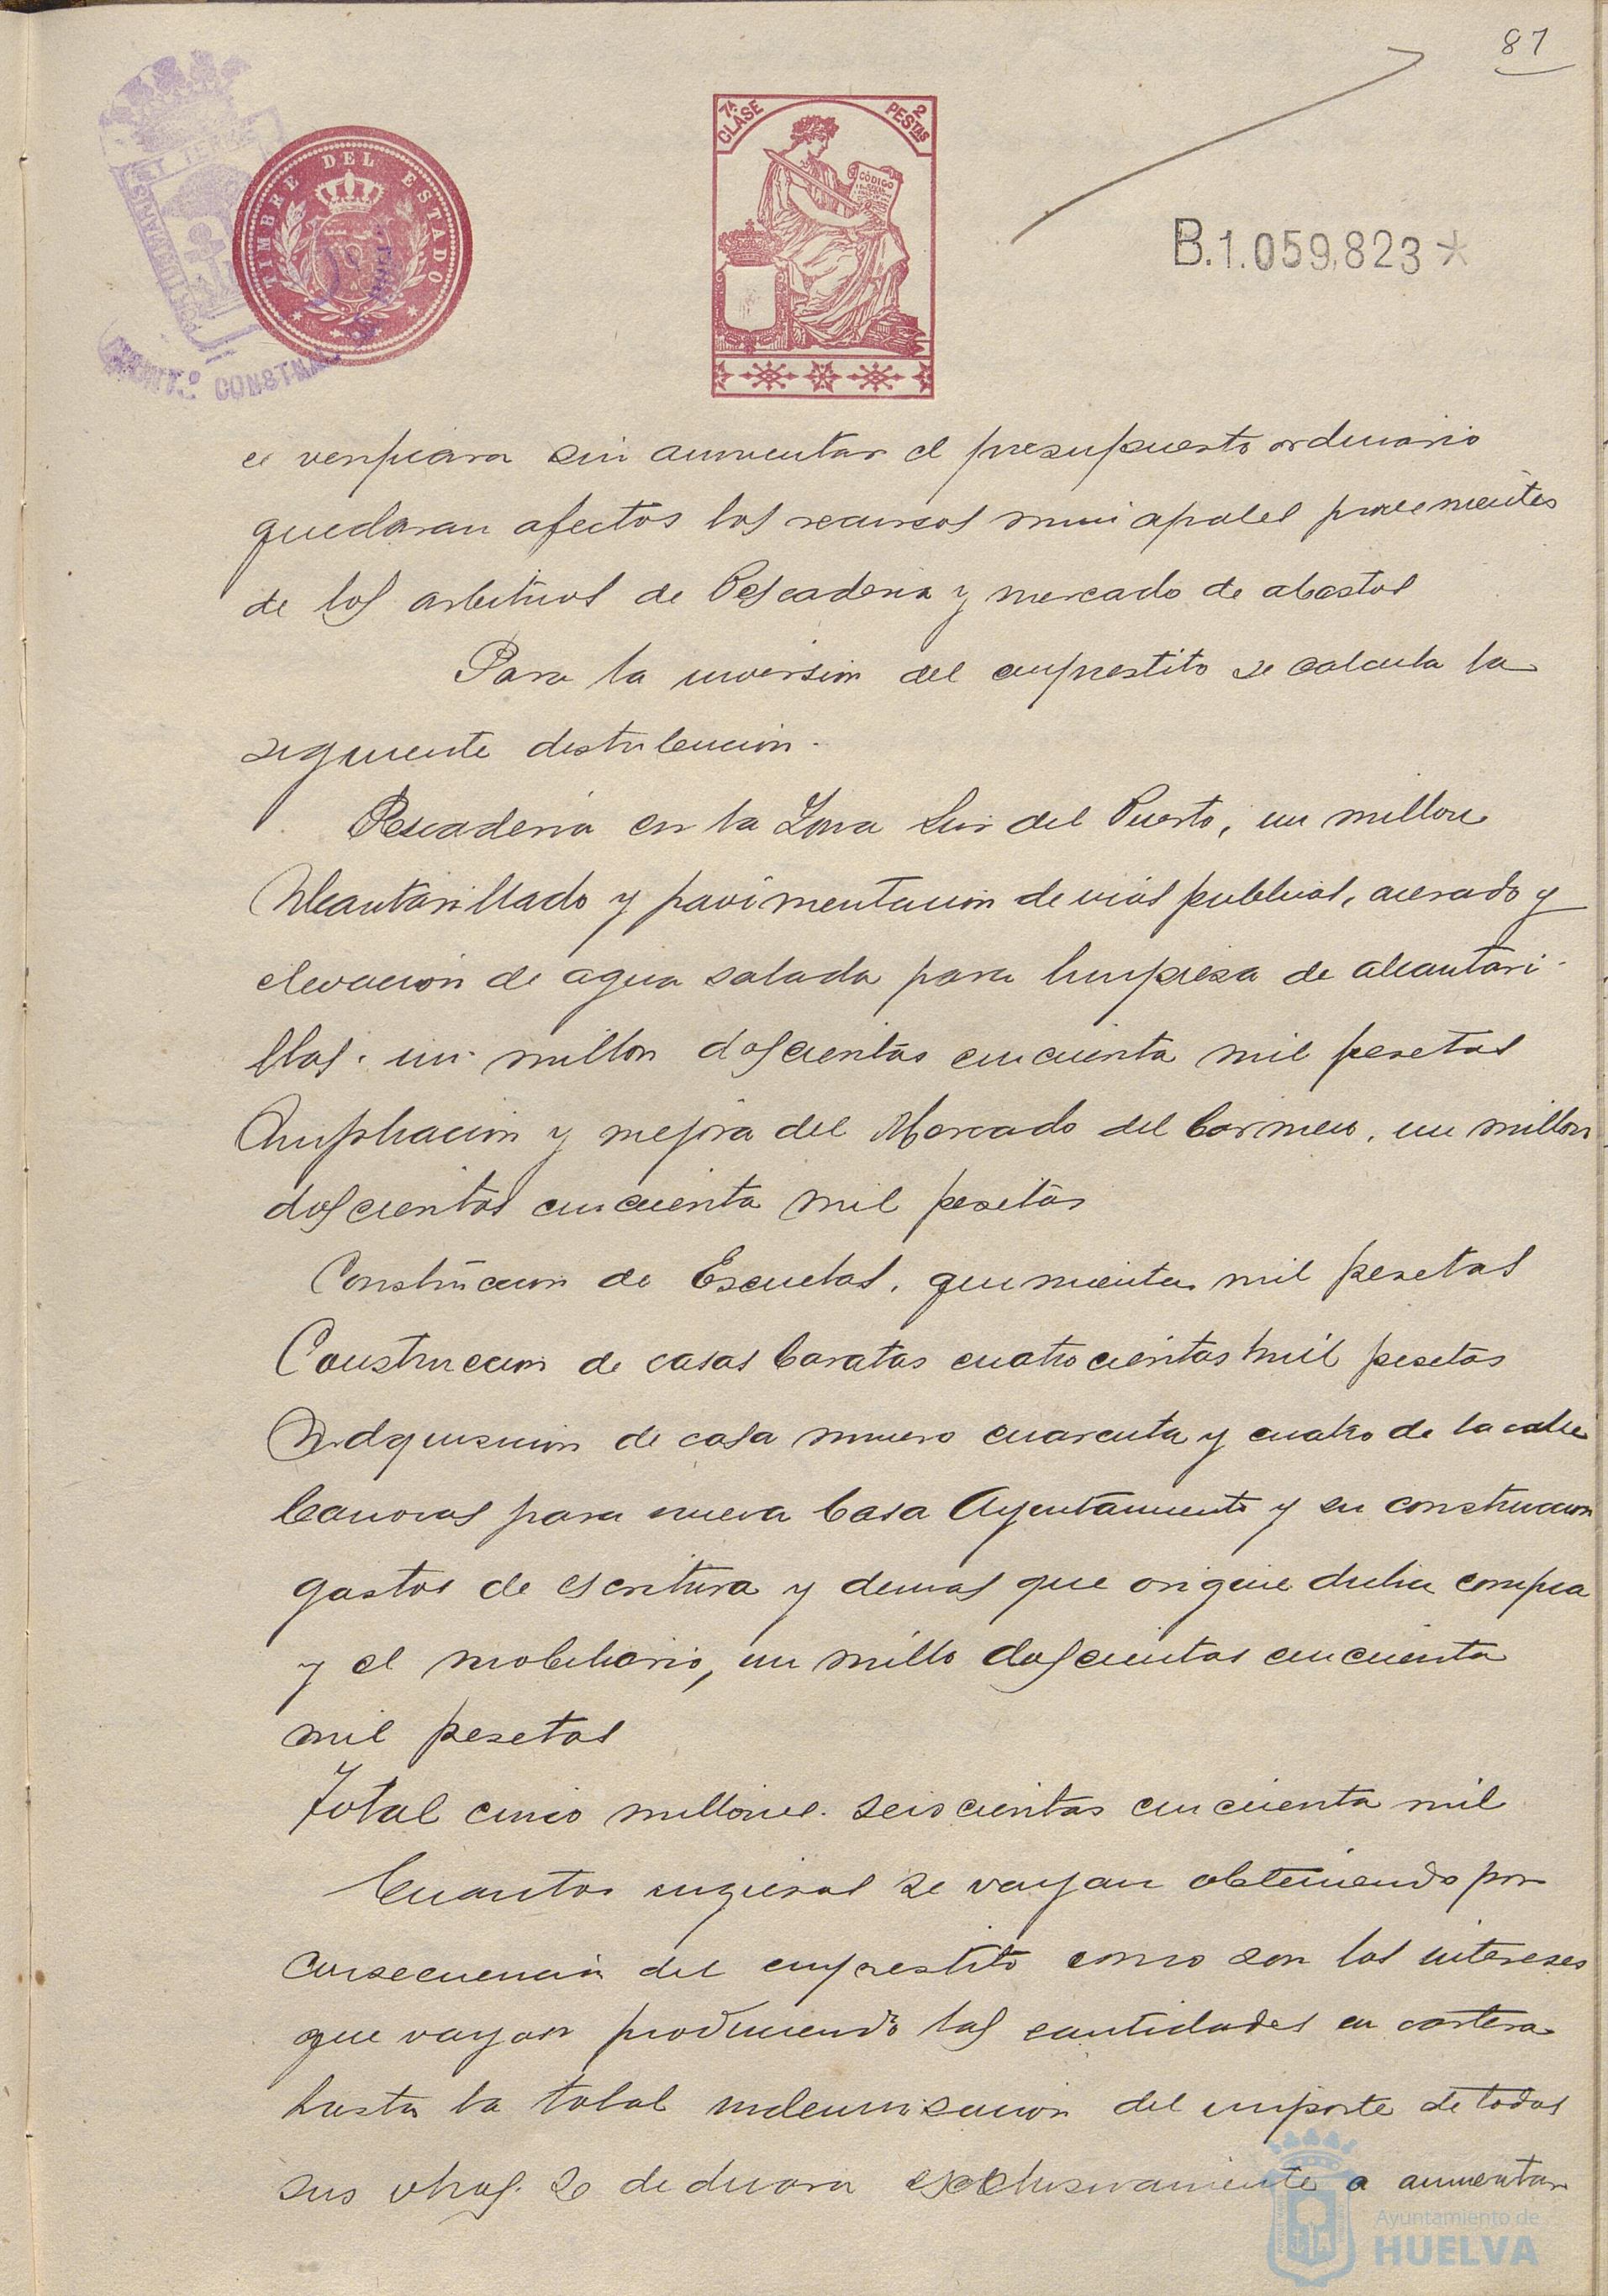 87
7ª CLASE
2 PESTAS
CÓDIGO
TIMBRE DEL ESTADO
PORTUS MARIS ET TERRÆ
CONSTNAL
B.1.059,823*
se verificara sin aumentar el presupuesto ordinario
quedaran afectos los recursos municipales provenientes
de los arbitrios de Pescaderia y mercado de abastos
Para la inversion del emprestito se calcula la
siguiente distribucion.
Pescaderia en la Zona Sur del Puerto, un millon
Alcantarillado y pavimentacion de vias publicas, acerado y
elevacion de agua salada para limpieza de alcantari-
llas. un millon doscientas cincuenta mil pesetas
Ampliacion y mejora del Mercado del Carmen, un millon
doscientas cincuenta mil pesetas
Construccion de Escuelas, quinientas mil pesetas
Construccion de casas baratas cuatrocientas mil pesetas
Adquisicion de casa numero cuarenta y cuatro de la calle
Canovas para nueva Casa Ayuntamiento y su construccion
gastos de escritura y demas que origine dicha compra
y el mobiliario, un millo doscientas cincuenta
mil pesetas
Total cinco millones. seiscientas cincuenta mil
Cuantos ingresos se vayan obteniendo por
consecuencia del emprestito como son los intereses
que vayan produciendo las cantidades en cartera
hasta la total indemnisacion del importe de todas
sus obras. se dedicara exclusivamente a aumentar
Ayuntamiento de
HUELVA